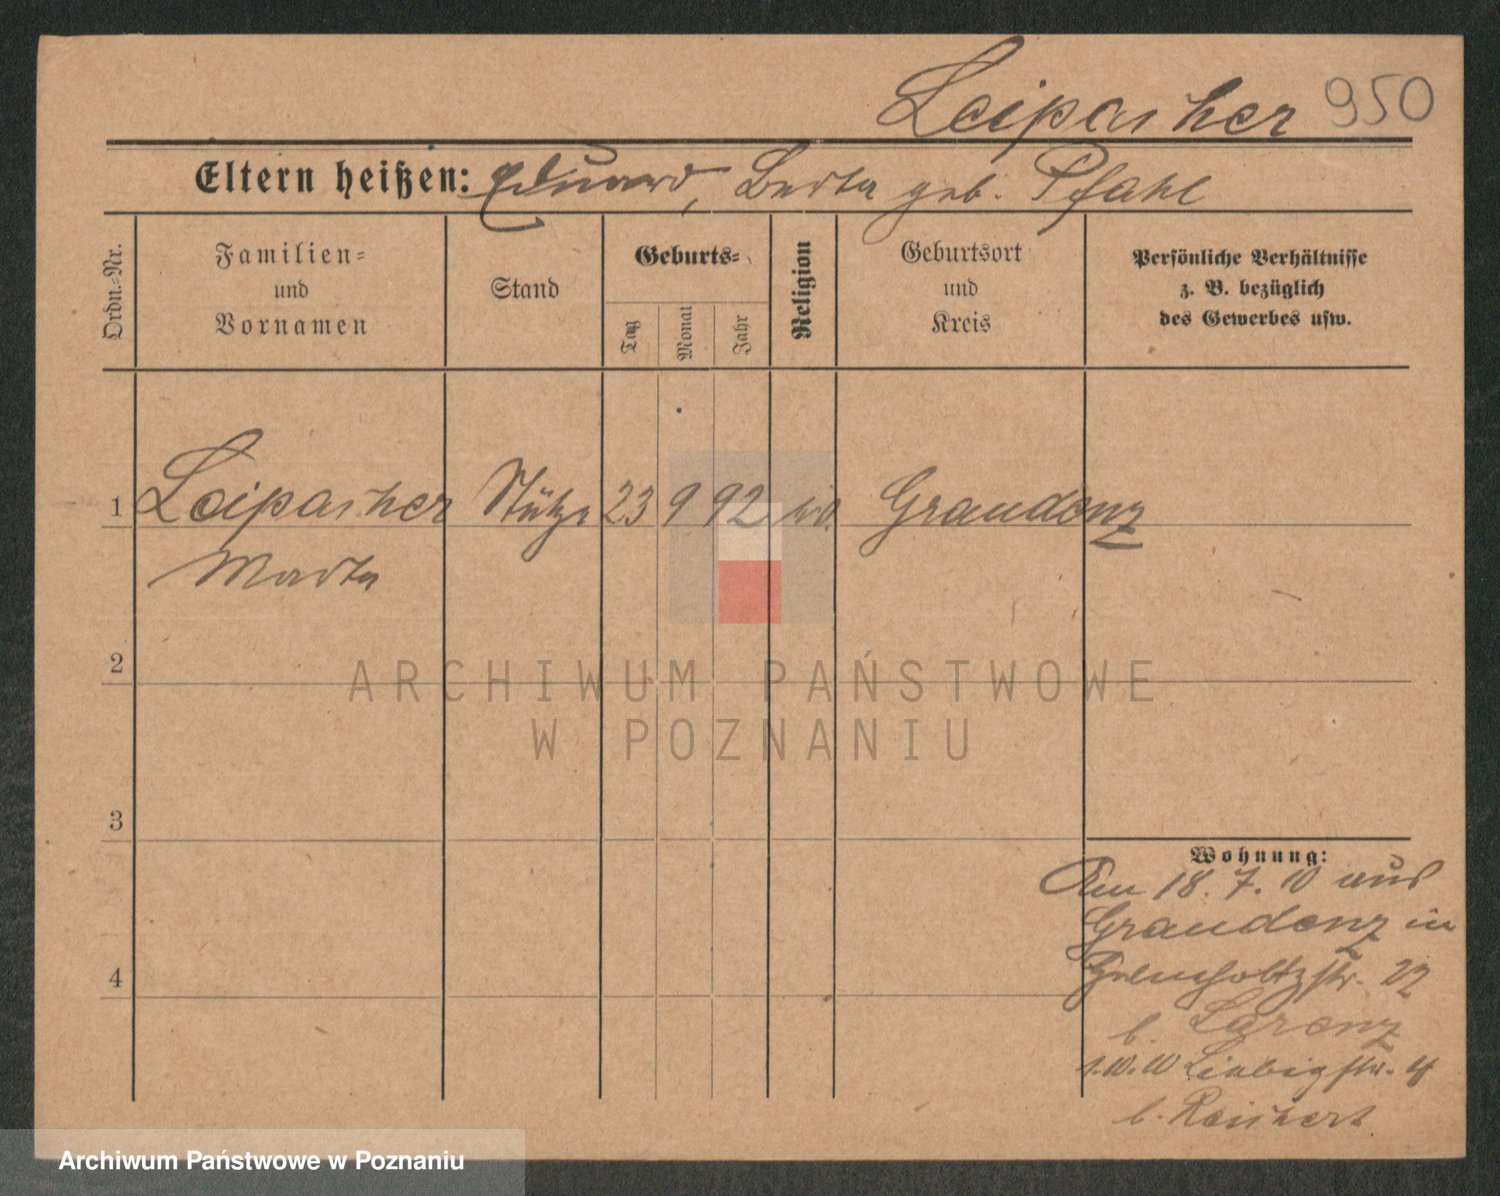 Leipacher 950
Eltern heißen: Eduard, Berta geb. Pfahl
Ordn.-Nr.
Familien-
und
Vornamen
Stand
Geburts-
Tag
Monat
Jahr
Religion
Geburtsort
und
Kreis
Persönliche Verhältnisse
z. B. bezüglich
des Gewerbes usw.
1 Leipacher Stütze 23 9 92 ev. Graudenz
Marta
2
ARCHIWUM PAŃSTWOWE
W POZNANIU
3
4
Wohnung:
Am 18. 7. 10 aus
Graudenz in
22
b. Lorenz
1.10.10 Liebigstr. 4
b. Reichert
Archiwum Państwowe w Poznaniu